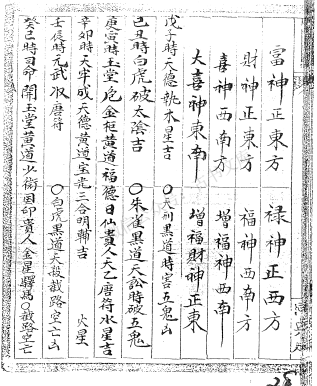 富神正東方 祿神正西方
財神正東方 福神西南方
喜神西南方 增福神西南
大喜神東南 增福財神正東
戊子時天德執木星吉 〇天刑黑道時害五鬼凶
己丑時白虎破太陰吉 〇朱雀黑道天訟時破五鬼
庚寅時玉堂危金柜黃道福德日仙貴人天乙唐符水星吉
辛卯時天牢成天德黃道宝光三合明輔吉 火星
壬辰時元武收唐符 〇白虎黑道天殺截路空亡凶
癸巳時司命開玉堂黃道少微国印貴人金星驛馬〇截路空亡
28